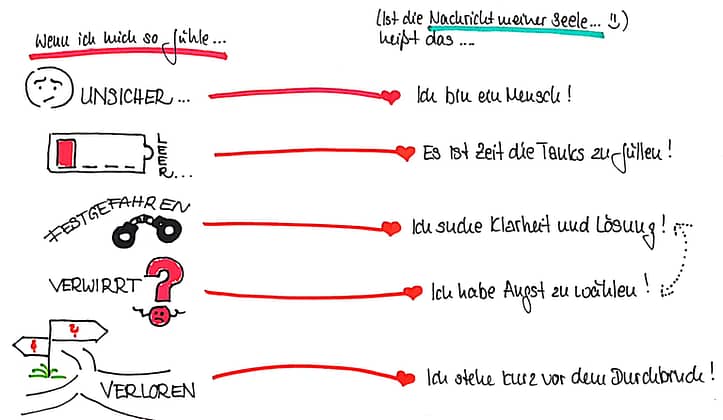 Wenn ich mich so fühle...
(Ist die Nachricht meiner Seele... )
heißt das ...
UNSICHER ...
Ich bin ein Mensch!
LEER...
Es ist Zeit die Tanks zu füllen!
FESTGEFAHREN
Ich suche Klarheit und Lösung!
VERWIRRT ?
Ich habe Angst zu wählen!
VERLOREN
Ich stehe kurz vor dem Durchbruch!